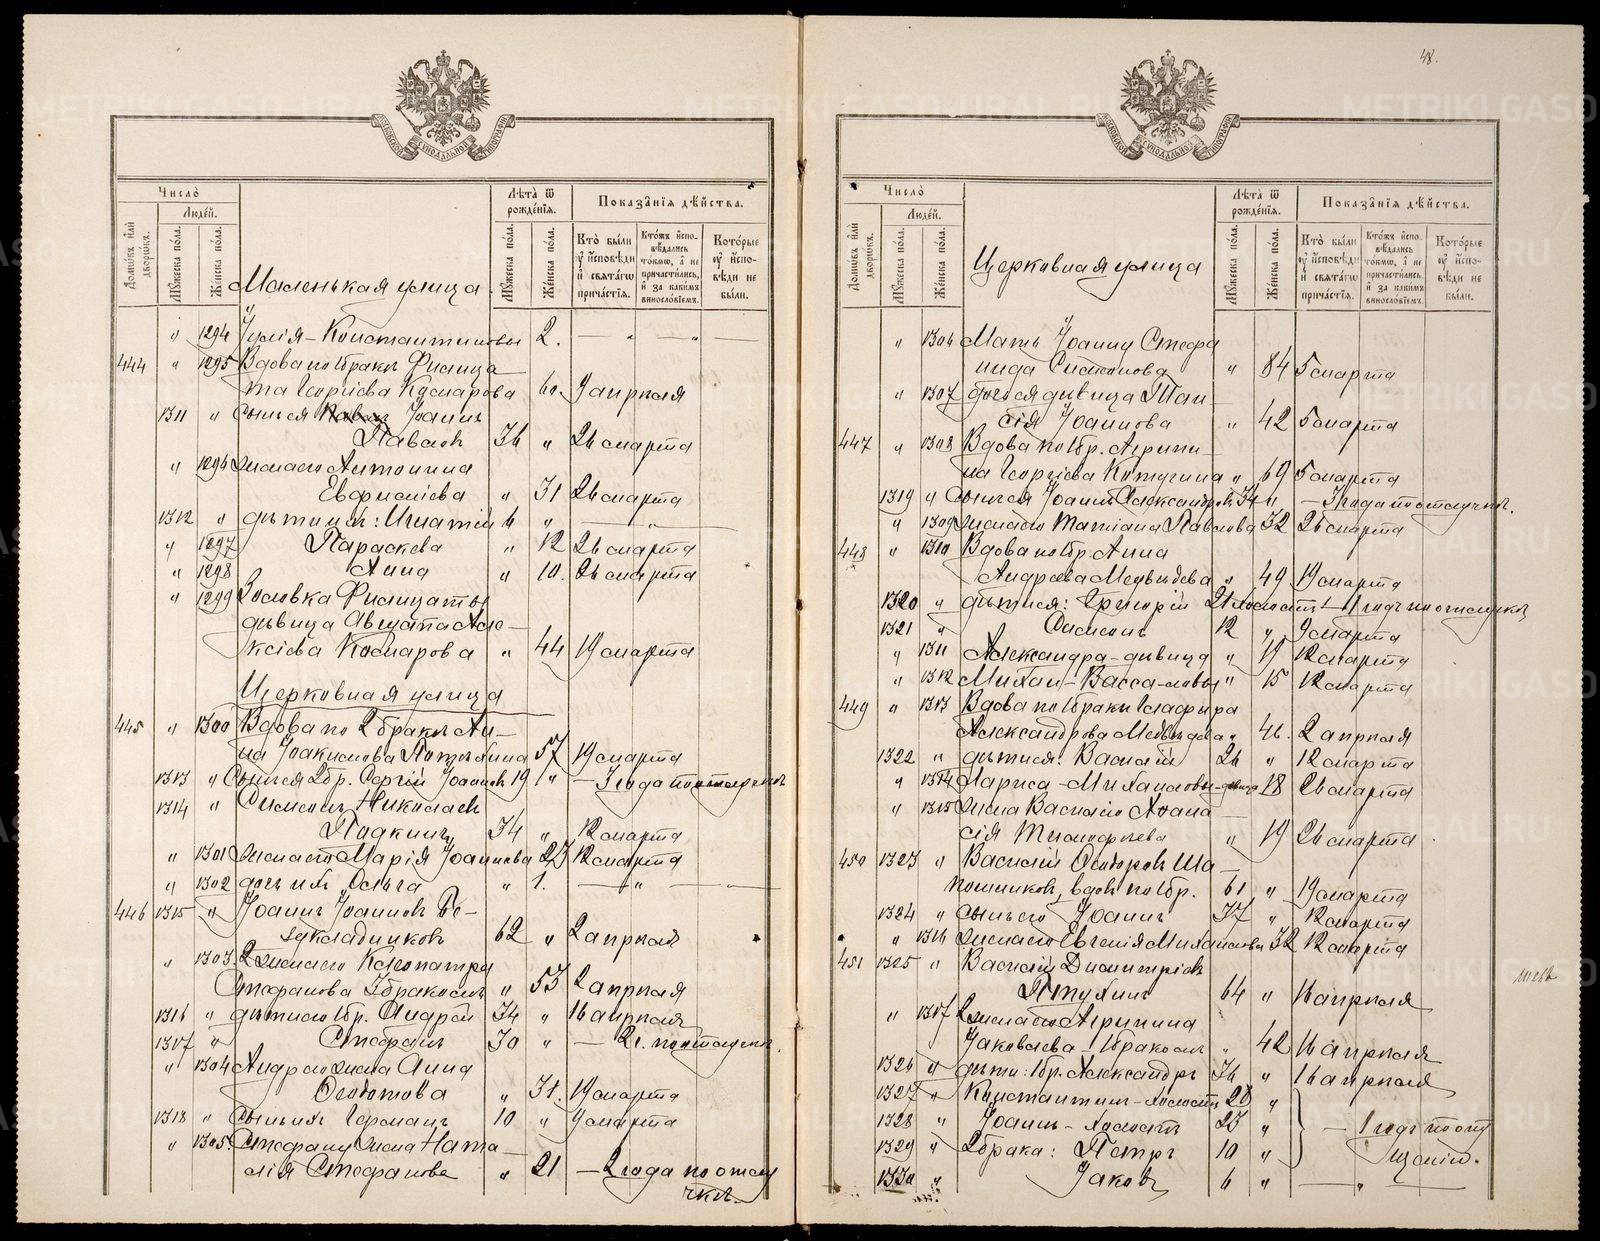 48.
Число̀
Людéй.
Домѡвъ и҆лѝ дворѡвъ.
Мꙋ́жеска по́ла.
Же́неска по́ла.
Маленькая улица.
Лѣта̀ ѿ рожде́нїѧ.
Мꙋ́жеска по́ла.
Же́неска по́ла.
Показа̑нїѧ дѣ́йства.
Кто̀ бы́ли ᲂу҆ и҆сповѣди и҆ свѧта́гѡ прича́стїѧ.
Кто́жъ и҆спо- вѣ́дались то́кмѡ, а҆ не причасти́лись, и҆ за каки́мъ винословїемъ.
Кото́рые ᲂу҆ и҆спо- вѣди не бы́ли.
" 1294 Юлія - Константиновы 2. — " — " —
444 " 1295 Вдова по 1 бракѣ Филица
та Георгіева Комарова 60. 9 апрѣля
1311 " Сынъ ея Іоаннъ
Павловъ 36 " 26 марта
" 1296 жена его Антонина
Евфиміева " 31 26 марта
1312 " дѣти ихъ: Игнатій 6 " — " —
" 1297 Параскева " 12 26 марта
" 1298 Анна " 10. 26 марта
" 1299 Золовка Филицаты
дѣвица Августа Але-
ксіева Комарова " 44 19 марта
Церковная улица
445 " 1300 Вдова по 2 бракѣ Ан-
на Іоакимова 57 19 марта
1313 " Сынъ ея 2 бр. Сергій Іоанновъ 19 " — 3 года по отлучкѣ
1314 " Симеонъ Николаевъ
34 " 12 марта
" 1301 жена его Марія Іоаннова 23 12 марта
" 1302 дочь ихъ Ольга " 1. — " — —
446 1315 " Іоаннъ Іоанновъ Бе-
62 " 2 апрѣля
" 1303. 2 жена его Клеопатра
Стефанова 3 бракомъ " 53 2 апрѣля
1316 " дѣти его 1 бр. Андрей 34 " 16 апрѣля
1317 " Стефанъ 30 " — 2 г. по отлучкѣ.
" 1304 Андрея жена Анна
Ѳеодотова " 31. 19 марта
1318 " Сынъ ихъ Германъ 10 " 9 марта
" 1305. Стефана жена Ната-
лія Стефанова " 21 — 2 года по отлу
чкѣ.
Число̀
Людéй.
Домѡвъ и҆лѝ дворѡвъ.
Мꙋ́жеска по́ла.
Же́неска по́ла.
Церковная улица
Лѣта̀ ѿ рожде́нїѧ.
Мꙋ́жеска по́ла.
Же́неска по́ла.
Показа̑нїѧ дѣ́йства.
Кто̀ бы́ли ᲂу҆ и҆сповѣди и҆ свѧта́гѡ прича́стїѧ.
Кто́жъ и҆спо- вѣ́дались то́кмѡ, а҆ не причасти́лись, и҆ за каки́мъ винословїемъ.
Кото́рые ᲂу҆ и҆спо- вѣди не бы́ли.
" 1306 Мать Іоанну Стефа
нида " 84 5 марта
" 1307 дочь ея дѣвица Таи-
сія Іоаннова " 42 5 марта
447 " 1308 Вдова по 1 бр. Агрипи-
на Георгіева " 69 5 марта
1319 " Сынъ ея Іоаннъ Александровъ 34 " — 3 года по отлучкѣ.
" 1309 жена его Татіана Павлова 32 26 марта
448 " 1310 Вдова по 1 бр. Анна
Андреева Медвѣдева " 49 19 марта
1320 " дѣти ея: Григорій 21 холостъ — 1 годъ по отлучкѣ
1321 " Симеонъ 12 " 9 марта
" 1311 Александра - дѣвица " 19 12 марта
" 1312 Васса " 15 12 марта
449 " 1313 Вдова по 1 бракѣ Глафира
Александрова Медвѣдева " 46. 2 апрѣля
1322 " дѣти ея: Василій 26 " 12 марта
" 1314 Лариса - Михаиловы - дѣвица 18 26 марта
" 1315 жена Василія Аѳана
сія Тимоѳеева " 19 26 марта
450 1323 " Василій Ѳеодоровъ Ша-
пошниковъ, вдовъ по 1 бр. 61 " 19 марта
1324 " сынъ его Іоаннъ 37 " 12 марта
" 1316 жена его Евгенія Михаилова 32 12 марта
451 1325 " Василій Димитріевъ
Пѣтухинъ 64 " 16 апрѣля
" 1317 2 жена его Агрипина
Іаковлева - 1 бракомъ " 42 16 апрѣля
1326 " дѣти: 1 бр. Александръ 36 " 16 апрѣля
1327 " Константинъ - холостъ 28 "
1328 " Іоаннъ - холостъ 23 " — 1 годъ по опу
1329 " 2 брака: Петръ 10 " щенію.
1330 " Іаковъ 6 " — " —
METRIKI.GASO-URAL.RU